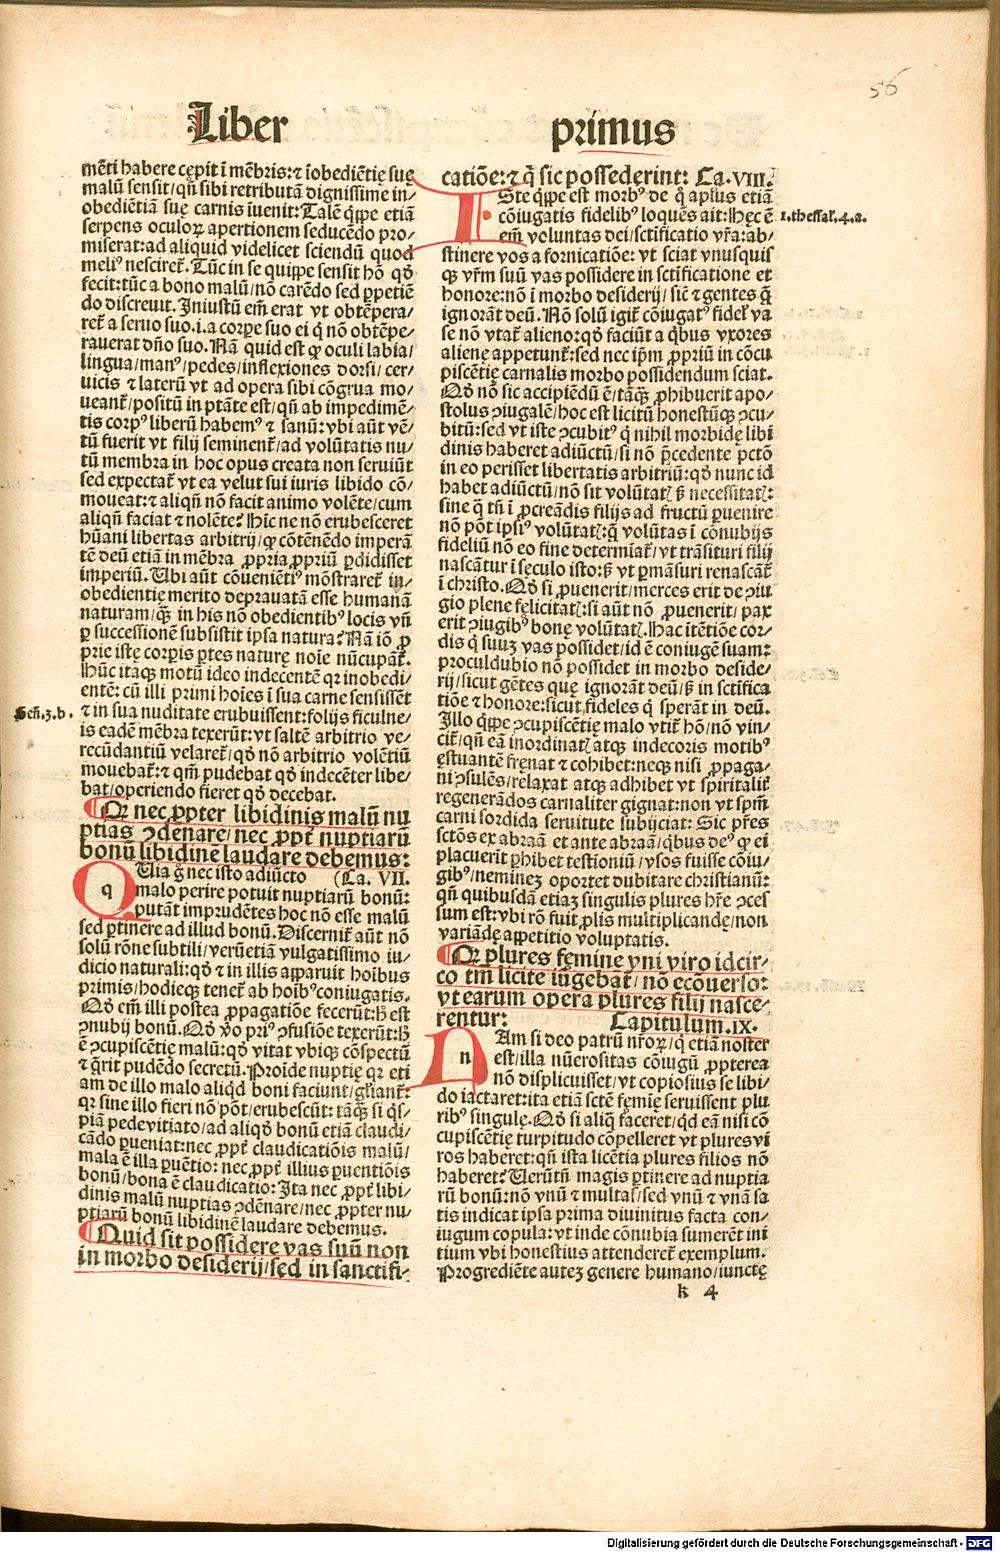 56
Liber primus
mẽti habere cępit ĩ mẽbris: ⁊ ĩobediẽtię suę
malũ sensit/ qñ sibi retributã dignissime in⸗
obediẽtiã suę carnis ĩuenit: Talẽ q̃ppe etiã
serpens oculoꝝ apertionem seducẽdo pro⸗
miserat: ad aliquid videlicet sciendũ quod
meliꝰ nescireť. Tũc in se quippe sensit hõ qđ
fecit: tũc a bono malũ/ nõ carẽdo sed ꝑpetiẽ
do discreuit. Iniustũ em̃ erat vt obtẽpera⸗
reť a seruo suo .i. a corꝑe suo ei q̃ nõ obtẽpe⸗
rauerat dño suo. Nã quid est ꝙ oculi labia/
lingua/ manꝰ/ pedes/ inflexiones dorsi/ cer⸗
uicis ⁊ laterũ vt ad opera sibi cõgrua mo⸗
ueanť/ positũ in ptãte est/ qñ ab impedimẽ⸗
tis corꝑꝰ liberũ habemꝰ ⁊ sanũ: vbi aũt vẽ⸗
tũ fuerit vt filij seminenť/ ad volũtatis nu⸗
tũ membra in hoc opus creata non seruiũt
sed expectať vt ea velut sui iuris libido cõ⸗
moueat: ⁊ aliqñ nõ facit animo volẽte/ cum
aliqñ faciat ⁊ nolẽte? Hic ne nõ erubesceret
hũani libertas arbitrij/ ꝙ cõtẽnẽdo imperã
tẽ deũ etiã in mẽbra ꝓpria ꝓpriũ ꝑdidisset
imperiũ. Ubi aũt cõueniẽtiꝰ mõstrareť in⸗
obedientię merito deprauatã esse humanã
naturam/ q̃ꝫ in his nõ obedientibꝰ locis vñ
ꝑ successionẽ subsistit ipsa natura? Nã iõ ꝓ
prie istę corꝑis ꝑtes naturę noĩe nũcupãť.
Hũc itaqꝫ motũ ideo indecentẽ qꝛ inobedi⸗
entẽ: cũ illi primi hoĩes ĩ sua carne sensissẽt
Geñ.3.b. ⁊ in sua nuditate erubuissent: folijs ficulne⸗
is eadẽ mẽbra texerũt: vt saltẽ arbitrio ve⸗
recũdantiũ velareť/ qđ nõ arbitrio volẽtiũ
mouebať: ⁊ qm̃ pudebat qđ indecẽter libe⸗
bat/ operiendo fieret qđ decebat.
¶ Qꝛ nec ꝓpter libidinis malũ nu
ptias ꝯdẽnare/ nec ꝓpť nuptiarũ
bonũ libidinẽ laudare debemus:
QUia g̃ nec isto adiũcto (Ca. VII.
q malo perire potuit nuptiarũ bonũ:
putãt imprudẽtes hoc nõ esse malũ
sed ꝑtinere ad illud bonũ. Discerniť aũt nõ
solũ rõne subtili/ verũetiã vulgatissimo iu⸗
dicio naturali: qđ ⁊ in illis apparuit hoĩbus
primis/ hodieqꝫ teneť ab hoĩbꝰ coniugatis.
Qđ em̃ illi postea ꝓpagatiõe fecerũt: ħ est
ꝯnubij bonũ. Qđ ṽo priꝰ ꝯfusiõe texerũt: ħ
ẽ ꝯcupiscẽtię malũ: qđ vitat vbiqꝫ cõspectũ
⁊ q̃rit pudẽdo secretũ. Proide nuptię qꝛ eti
am de illo malo aliqd boni faciunt/ gl̃ianť:
qꝛ sine illo fieri nõ põt/ erubescũt: tãq̃ꝫ si q̃s⸗
piã pede vitiato/ ad aliqđ bonũ etiã claudi⸗
cãdo ꝑueniat: nec ꝓpť claudicatiõis malũ/
mala ẽ illa ꝑuẽtio: nec ꝓpť illius ꝑuentiõis
bonũ/ bona ẽ claudicatio: Ita nec ꝓpť libi⸗
dinis malũ nuptias ꝯdẽnare/ nec ꝓpter nu⸗
ptiarũ bonũ libidinẽ laudare debemus.
¶ Quid sit possidere vas suũ non
in morbo desiderij/ sed in sanctifi⸗
catiõe: ⁊ q̃ sic possederint: Ca. VIII.
ISte q̃ppe est morbꝰ de q̃ apľus etiã
cõiugatis fidelibꝰ loquẽs ait: Hęc ẽ 1.thessal.4.a.
em̃ voluntas dei/ sctificatio vr̃a: ab⸗
stinere vos a fornicatiõe: vt sciat vnusquis
qꝫ vr̃m suũ vas possidere in sctificatione et
honore: nõ ĩ morbo desiderij/ sic̃ ⁊ gentes q̃
ignorãt deũ. Nõ solũ igiť cõiugatꝰ fideľ va
se nõ vtať alieno: qđ faciũt a q̃bus vxores
alienę appetunť: sed nec ip̃m ꝓpriũ in cõcu
piscẽtię carnalis morbo possidendum sciat.
Qđ nõ sic accipiẽdũ ẽ/ tãq̃ꝫ ꝓhibuerit apo⸗
stolus ꝯiugalẽ/ hoc est licitũ honestũqꝫ ꝯcu⸗
bitũ: sed vt iste ꝯcubitꝰ q̃ nihil morbidę libi
dinis haberet adiũctũ/ si nõ p̃cedente pctõ
in eo perisset libertatis arbitriũ: qđ nunc id
habet adiũctũ/ nõ sit volũtatꝭ ß necessitatꝭ:
sine q̃ tñ ĩ ꝓcreãdis filijs ad fructũ ꝑuenire
nõ põt ipsiꝰ volũtatꝭ: q̃ voluntas ĩ cõnubijs
fideliũ nõ eo fine determĩať/ vt trãsituri filij
nascãtur ĩ sęculo isto: ß vt ꝑmãsuri renascãť
ĩ christo. Qđ si ꝓuenerit/ merces erit de ꝯiu
gio plene fęlicitatꝭ: si aũt nõ ꝓuenerit/ pax
erit ꝯiugibꝰ bonę volũtatꝭ. Hac ĩtẽtiõe cor⸗
dis q̃ suuꝫ vas possidet/ id ẽ coniugẽ suam:
proculdubio nõ possidet in morbo deside⸗
rij/ sicut gẽtes quę ignorãt deũ/ ß in sctifica
tiõe ⁊ honore: sicut fideles q̃ sperãt in deũ.
Illo q̃ppe ꝯcupiscẽtię malo vtiť hõ/ nõ vin⸗
ciť/ qñ eã inordinatꝭ atqꝫ indecoris motibꝰ
ęstuantẽ fręnat ⁊ cohibet: neqꝫ nisi ꝓpaga⸗
ni ꝯsulẽs/ relaxat atqꝫ adhibet vt spiritaliť
regenerãdos carnaliter gignat: non vt spm̃
carni sordida seruitute subijciat: Sic pr̃es
sctõs ex abraã et ante abraã/ q̃bus deꝰ ꝙ ei
placuerit ꝑhibet testioniũ/ vsos fuisse cõiu⸗
gibꝰ/ nemineꝫ oportet dubitare christianũ:
qñ quibusdã etiaꝫ singulis plures hr̃e ꝯces
sum est: vbi rõ fuit ꝓlis multiplicandę/ non
variãdę appetitio voluptatis.
¶ Qꝛ plures fęmine vni viro idcir⸗
co tm̃ licite iũgebãť/ nõ ecõuerso:
vt earum opera plures filij nasce⸗
rentur: Capitulum .IX.
NAm si deo patrũ nr̃oꝝ/ q̃ etiã noster
n est/ illa nũerositas cõiugũ ꝓpterea
nõ displicuisset/ vt copiosius se libi⸗
do iactaret: ita etiã sctẽ femĩę seruissent plu
ribꝰ singulę. Qđ si aliq̃ faceret/ qd eã nisi cõ
cupiscẽtię turpitudo cõpelleret vt plures vi
ros haberet: qñ ista licẽtia plures filios nõ
haberet? Uerũtñ magis ꝑtinere ad nuptia
rũ bonũ: nõ vnũ ⁊ multas/ sed vnũ ⁊ vnã sa
tis indicat ipsa prima diuinitus facta con⸗
iugum copula: vt inde cõnubia sumerẽt ini
tium vbi honestius attendereť exemplum.
Progrediẽte auteꝫ genere humano/ iunctę
k 4
Digitalisierung gefördert durch die Deutsche Forschungsgemeinschaft - DFG